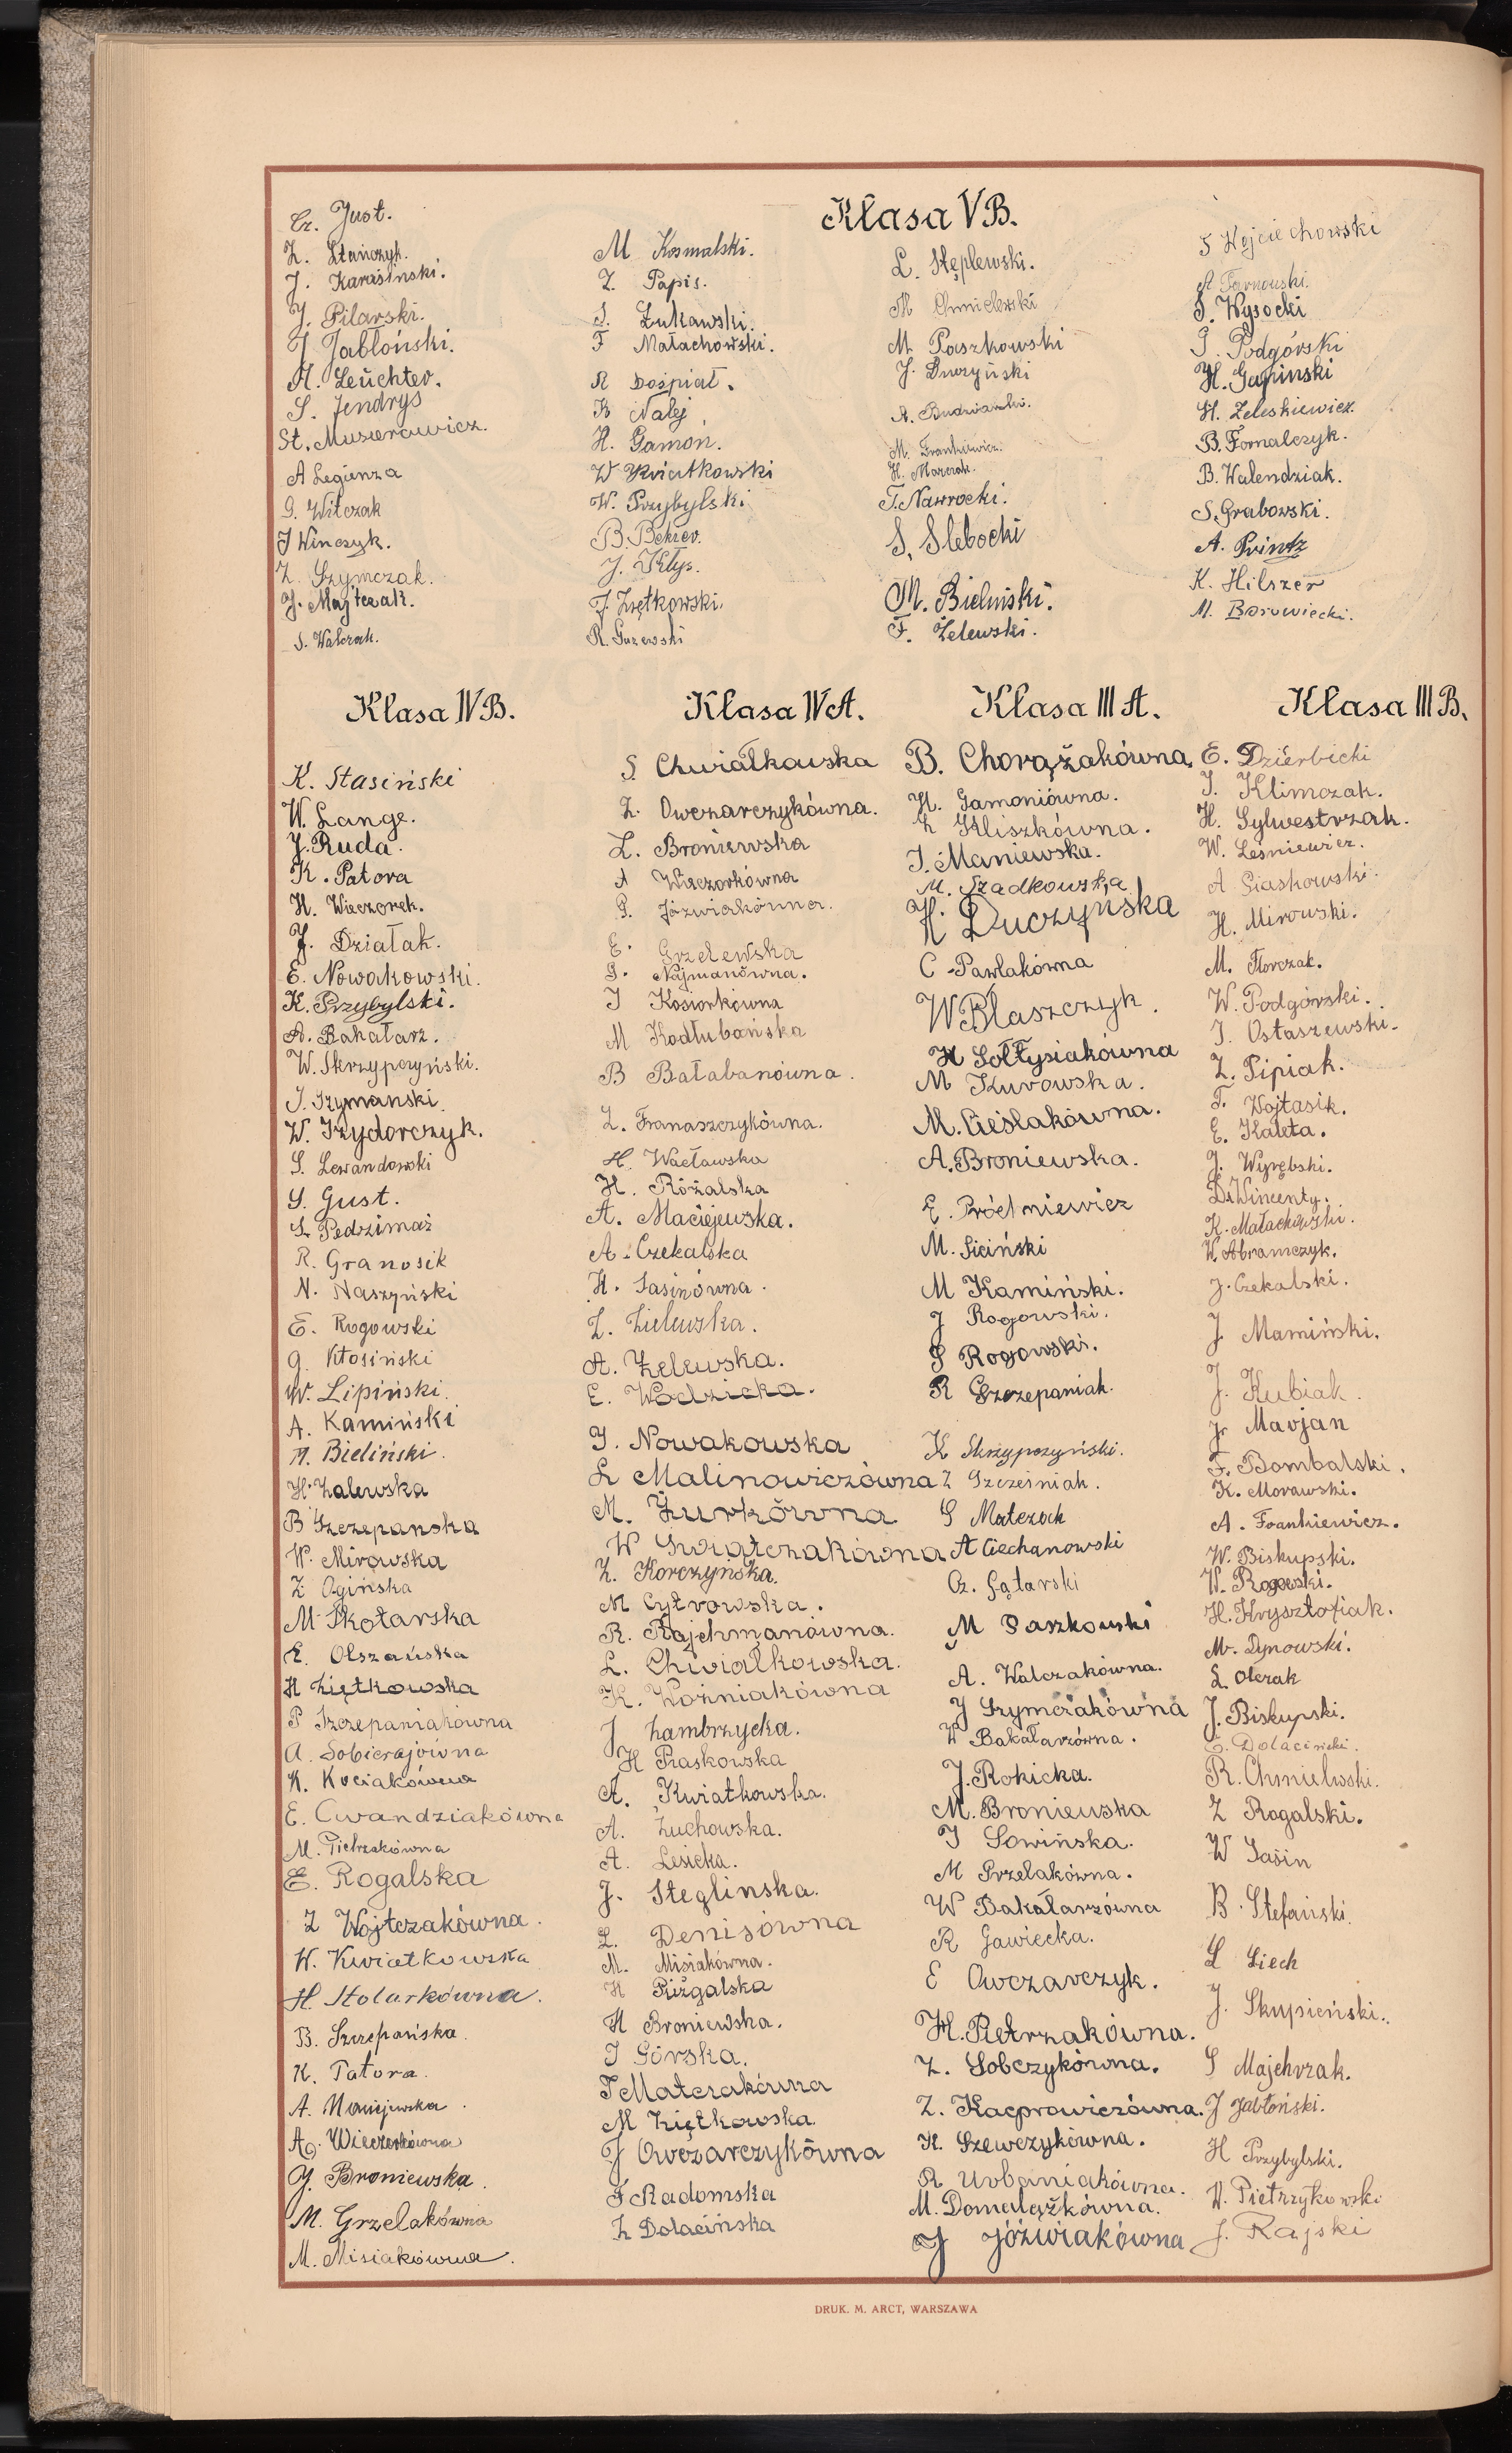 Klasa V B.
Cz. Just.
Z. Stańczyk.
J. Karasiński.
J. Pilarski.
J. Jabłoński.
A. Leuchter.
S. Jendrys
St. Muszerowicz.
A Legienza
G. Witczak
J Winczyk.
Z. Szymczak.
J. Majtczak.
S. Walczak.
M Kosmalski.
Z. Papis.
S. Żukawski.
F Małachowski.
R Dośpiał.
K Nalej
H. Gamoń.
W Kwiatkowski
W. Przybylski
B. Bekier.
J. Kłys.
J. Ziętkowski.
R. Gazewski
L. Stęplewski.
M Chmielewski
M Paszkowski
J. Duczyński
A. Budziański.
M. Frankiewicz.
H. Marczak.
T. Nawrocki.
S. Slebocki
M. Bieliński.
F. Żelewski.
S Wojciechowski
A Tarnowski.
S. Wysocki
J. Podgórski
H. Gapinski
H. Zeleskiewicz.
B. Fornalczyk.
B. Walendziak.
S. Grabowski.
A. Printz
K. Hilszer
M. Borowiecki.
Klasa IV B.
K. Stasiński
W. Lange.
J. Ruda.
K. Patora
H. Wieczorek.
J. Działak.
E. Nowakowski.
K. Przybylski.
A. Bakałarz.
W. Skrzypczyński.
J. Szymanski.
W. Izydorczyk.
S. Lewandowski
S. Gust.
S. Pędzimaż
R. Granosik
N. Naszyński
E. Rogowski
G. Kłosiński
W. Lipiński.
A. Kamiński
A. Bieliński.
H. Zalewska
B Szczepanska
W. Mirowska
Z Ogińska
M Skotarska
E. Olszańska
H Ziętkowska
P Szczepaniakówna
A. Sobierajówna
K. Kociakówna
E. Cwandziakówna
M. Pietrzakówna
E. Rogalska
Z Wojtczakówna.
W. Kwiatkowska
H. Stolarkówna.
B. Szczepańska.
K. Patora.
A. Maniejewska.
A. Wieczorkówna
G. Broniewska.
M. Grzelakówna
M. Misiakówna.
Klasa IV A.
S. Chwiałkowska
Z. Owczarczykówna.
Z. Broniewska
A Wieczorkówna
G. Jóźwiakówna.
E. Grzelewska
G. Najmanówna.
J Kosiorkówna
M Kodłubańska
B Bałabanówna.
Z. Franaszczykówna.
H. Wacławska
H. Różalska
A. Maciejewska.
A. Czekalska
H. Jasinówna.
Z. Zielewska.
A. Żelewska.
E. Wodzicka.
J. Nowakowska
L Malinowiczówna
M. Żurkówna
W Świątczakówna
Z. Korczyńska.
M Cytrowska.
R. Rajchmanówna.
L. Chwiałkowska.
K. Woźniakówna
J Zambrzycka.
H Raskowska
A. Kwiatkowska.
A. Żuchowska.
A. Lesicka.
J. Steglinska.
L. Denisówna
M. Misiakówna.
H Różgalska
H Broniewska.
J Górska.
T Matczakówna
M Ziętkowska
J Owczarczykówna
F Radomska
Z Dolacińska
Klasa III A.
B. Chorążakówna.
H. Gamoniówna.
Z Kliszkówna.
J. Maniewska.
M. Szadkowska
H. Duczyńska
C. Pawlakówna
W Błaszczyk.
H Sołtysiakówna
M Kurowska.
M. Cieślakówna.
A. Broniewska.
E. Próchniewicz
M. Siciński
M Kamiński.
J Rogowski.
S Rogowski.
R Szczepaniak.
K Skrzypczyński.
Z Szcześniak.
S Matczak
A Ciechanowski
Cz. Gątarski
M Paszkowski
A. Walczakówna.
J Szymczakówna
W Bakałarzówna.
J. Rokicka.
M. Broniewska
J Sowińska.
M Przelakówna.
W Bakałarzówna
R Gawiecka.
E Owczarczyk.
H. Pietrzakówna.
Z. Sobczykówna.
Z. Kacprowiczówna.
K. Szewczykówna.
R Urbaniakówna.
M. Domalążkówna.
J Jóźwiakówna
Klasa III B.
E. Dzierbicki
J. Klimczak.
H. Sylwestrzak.
W. Leśniewicz.
A Piaskowski.
H. Mirowski.
M. Florczak.
W. Podgórski.
J. Ostaszewski.
Z. Pipiak.
T. Wojtasik.
E. Kaleta.
J. Wyrębski.
D. Wincenty.
K. Małachowski.
W. Abramczyk.
J. Czekalski.
J. Mamiński.
J. Kubiak.
J. Marjan
F. Bombalski.
K. Morawski.
A. Frankiewicz.
W. Biskupski.
W. Rogowski.
H. Krysztofiak.
M. Dynowski.
L. Olczak
J. Biskupski.
E. Dolacinski.
R. Chmielwski.
Z Rogalski.
W Jasin
B. Stefański.
L Liech
J. Skupieński.
S Majchrzak.
J Jabłoński.
H Przybylski.
W. Pietrzykowski
J. Rajski
DRUK. M. ARCT, WARSZAWA